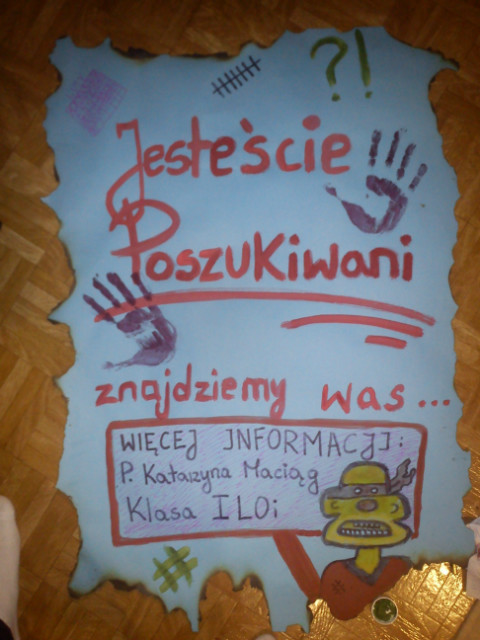 ?!
Jesteście
Poszukiwani
znajdziemy was...
WIĘCEJ INFORMACJI:
P. Katarzyna Maciąg
Klasa I LOi